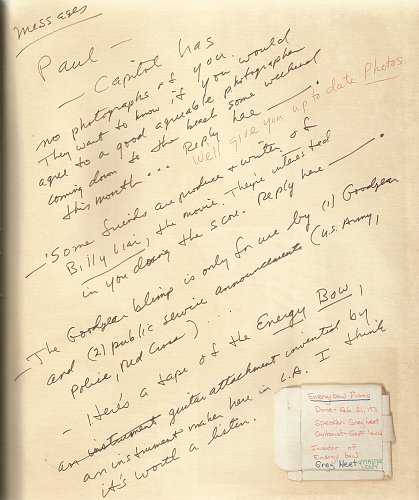 Messages
Paul –
– Capitol has
no photographs of you.
They want to know if you would
agree to a good agreeable photographer
coming down to the beach some weekend
this month... Reply here — .
We'll give you up to date Photos
– Some friends are producer + writer of
Billy Liar, the movie. They're interested
in you doing the score. Reply here — .
– The Goodyear blimp is only for use by (1) Goodyear
and (2) public service announcements (U.S. Army,
Police, Red Cross)...
– Here's a tape of the Energy Bow,
an instrument guitar attachment invented by
an instrument maker here in L.A. I think
it's worth a listen.
Energy bow Promo
Done - Feb. 21, 1971
Speaker - Greg Heet
Guitarist - Geoff Levin
Inventor of
Energy bow
Greg Heet